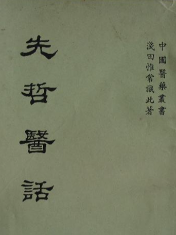 中國醫藥叢書
淺田惟常識此著
先哲醫話